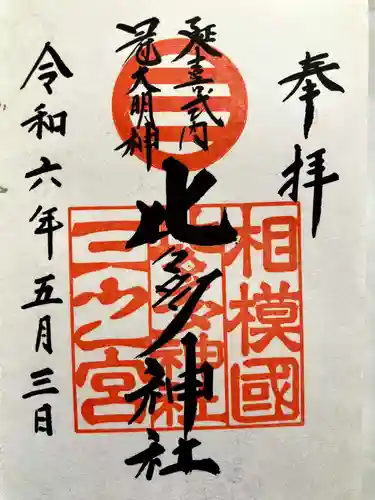 奉拝
延喜式内
冠大明神
比々多神社
令和六年五月三日
相模國
比比多神社
三之宮